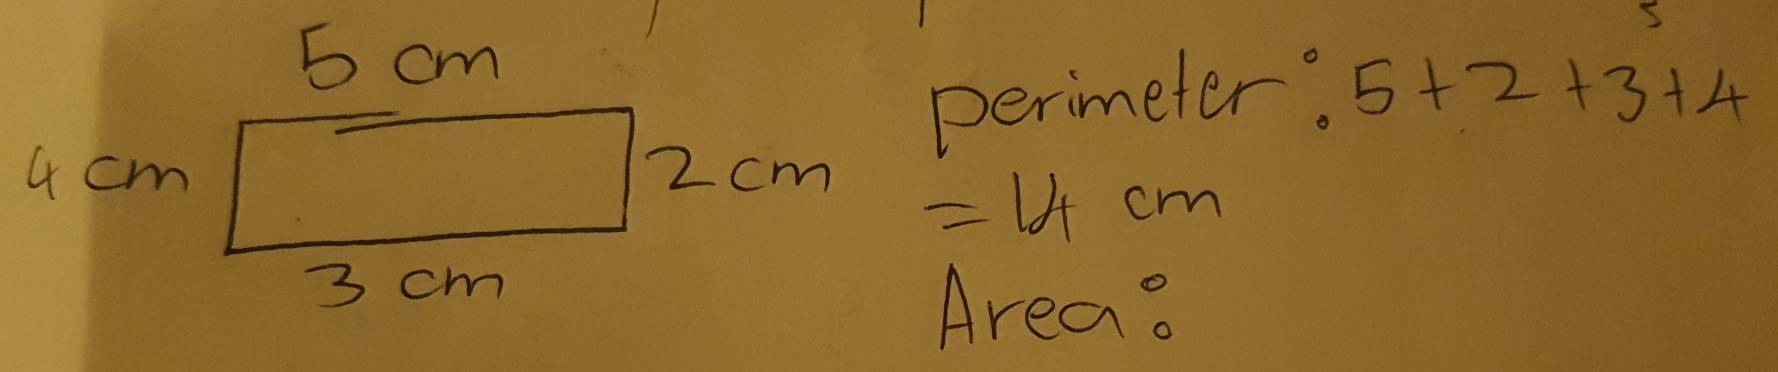 5 cm
4 cm
2 cm
3 cm
perimeter: 5+2+3+4
= 14 cm
Area: